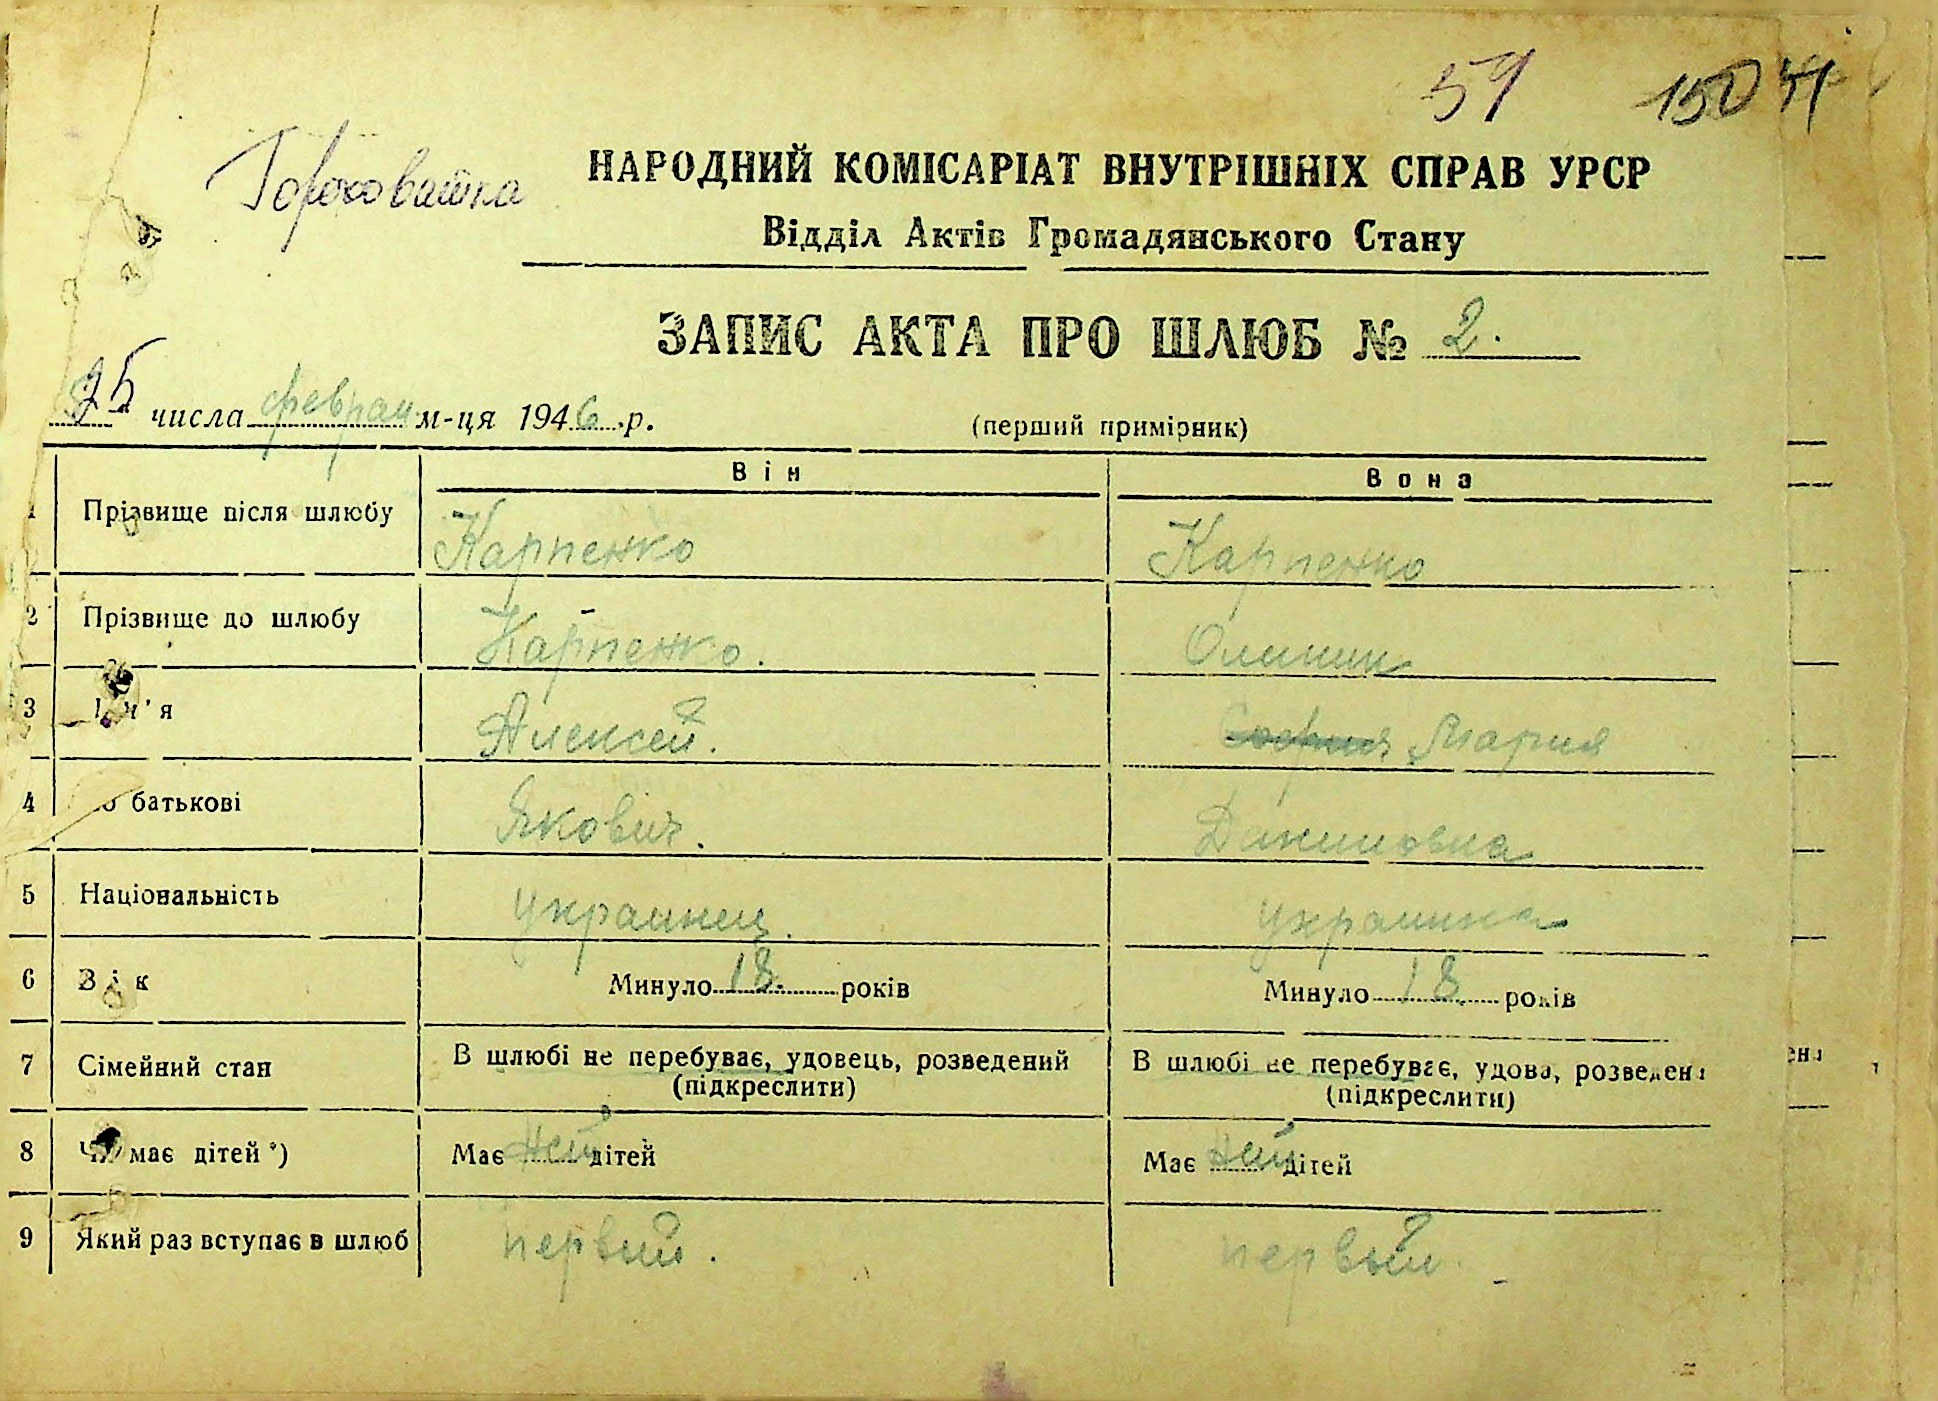 59 150
Гороховатка
НАРОДНИЙ КОМІСАРІАТ ВНУТРІШНІХ СПРАВ УРСР
Відділ Актів Громадянського Стану
ЗАПИС АКТА ПРО ШЛЮБ № 2.
25 числа феврал м-ця 1946 р. (перший примірник)
Він Вона
1 Прізвище після шлюбу Карпенко Карпенко
2 Прізвище до шлюбу Карпенко. Олиник
3 Ім'я Алексей. София Мария
4 По батькові Якович. Даниловна
5 Національність украинец. украинка
6 Вік Минуло 18 років Минуло 18 років
7 Сімейний стан В шлюбі не перебуває, удовець, розведений В шлюбі не перебуває, удова, розведена
(підкреслити) (підкреслити)
8 Чи має дітей *) Має нет дітей Має нет дітей
9 Який раз вступає в шлюб первый. первый.